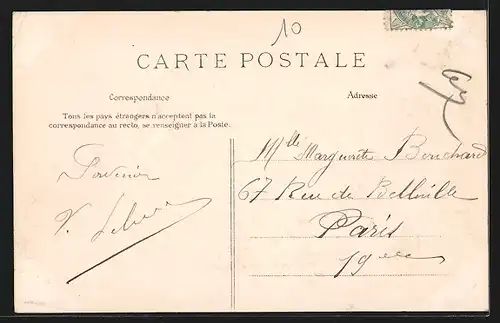 10
CARTE POSTALE
Correspondance
Adresse
Tous les pays étrangers n'acceptent pas la
correspondance au recto, se renseigner à la Poste.
Souvenir
V.
Mlle Marguerite Bouchard
67 Rue de Belleville
Paris
19eme